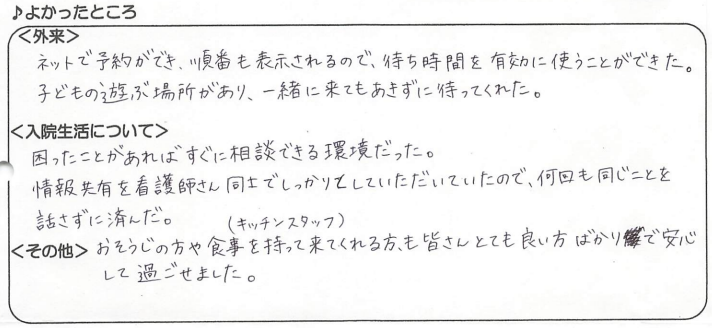 ♪よかったところ
<外来>
ネットで予約ができ、順番も表示されるので、待ち時間を有効に使うことができた。
子どもの遊ぶ場所があり、一緒に来てもあきずに待ってくれた。
<入院生活について>
困ったことがあればすぐに相談できる環境だった。
情報共有を看護師さん同士でしっかりとしていただいていたので、何回も同じことを
話さずに済んだ。
(キッチンスタッフ)
<その他> おそうじの方や食事を持って来てくれる方、も皆さんとても良い方ばかりで安心
して過ごせました。